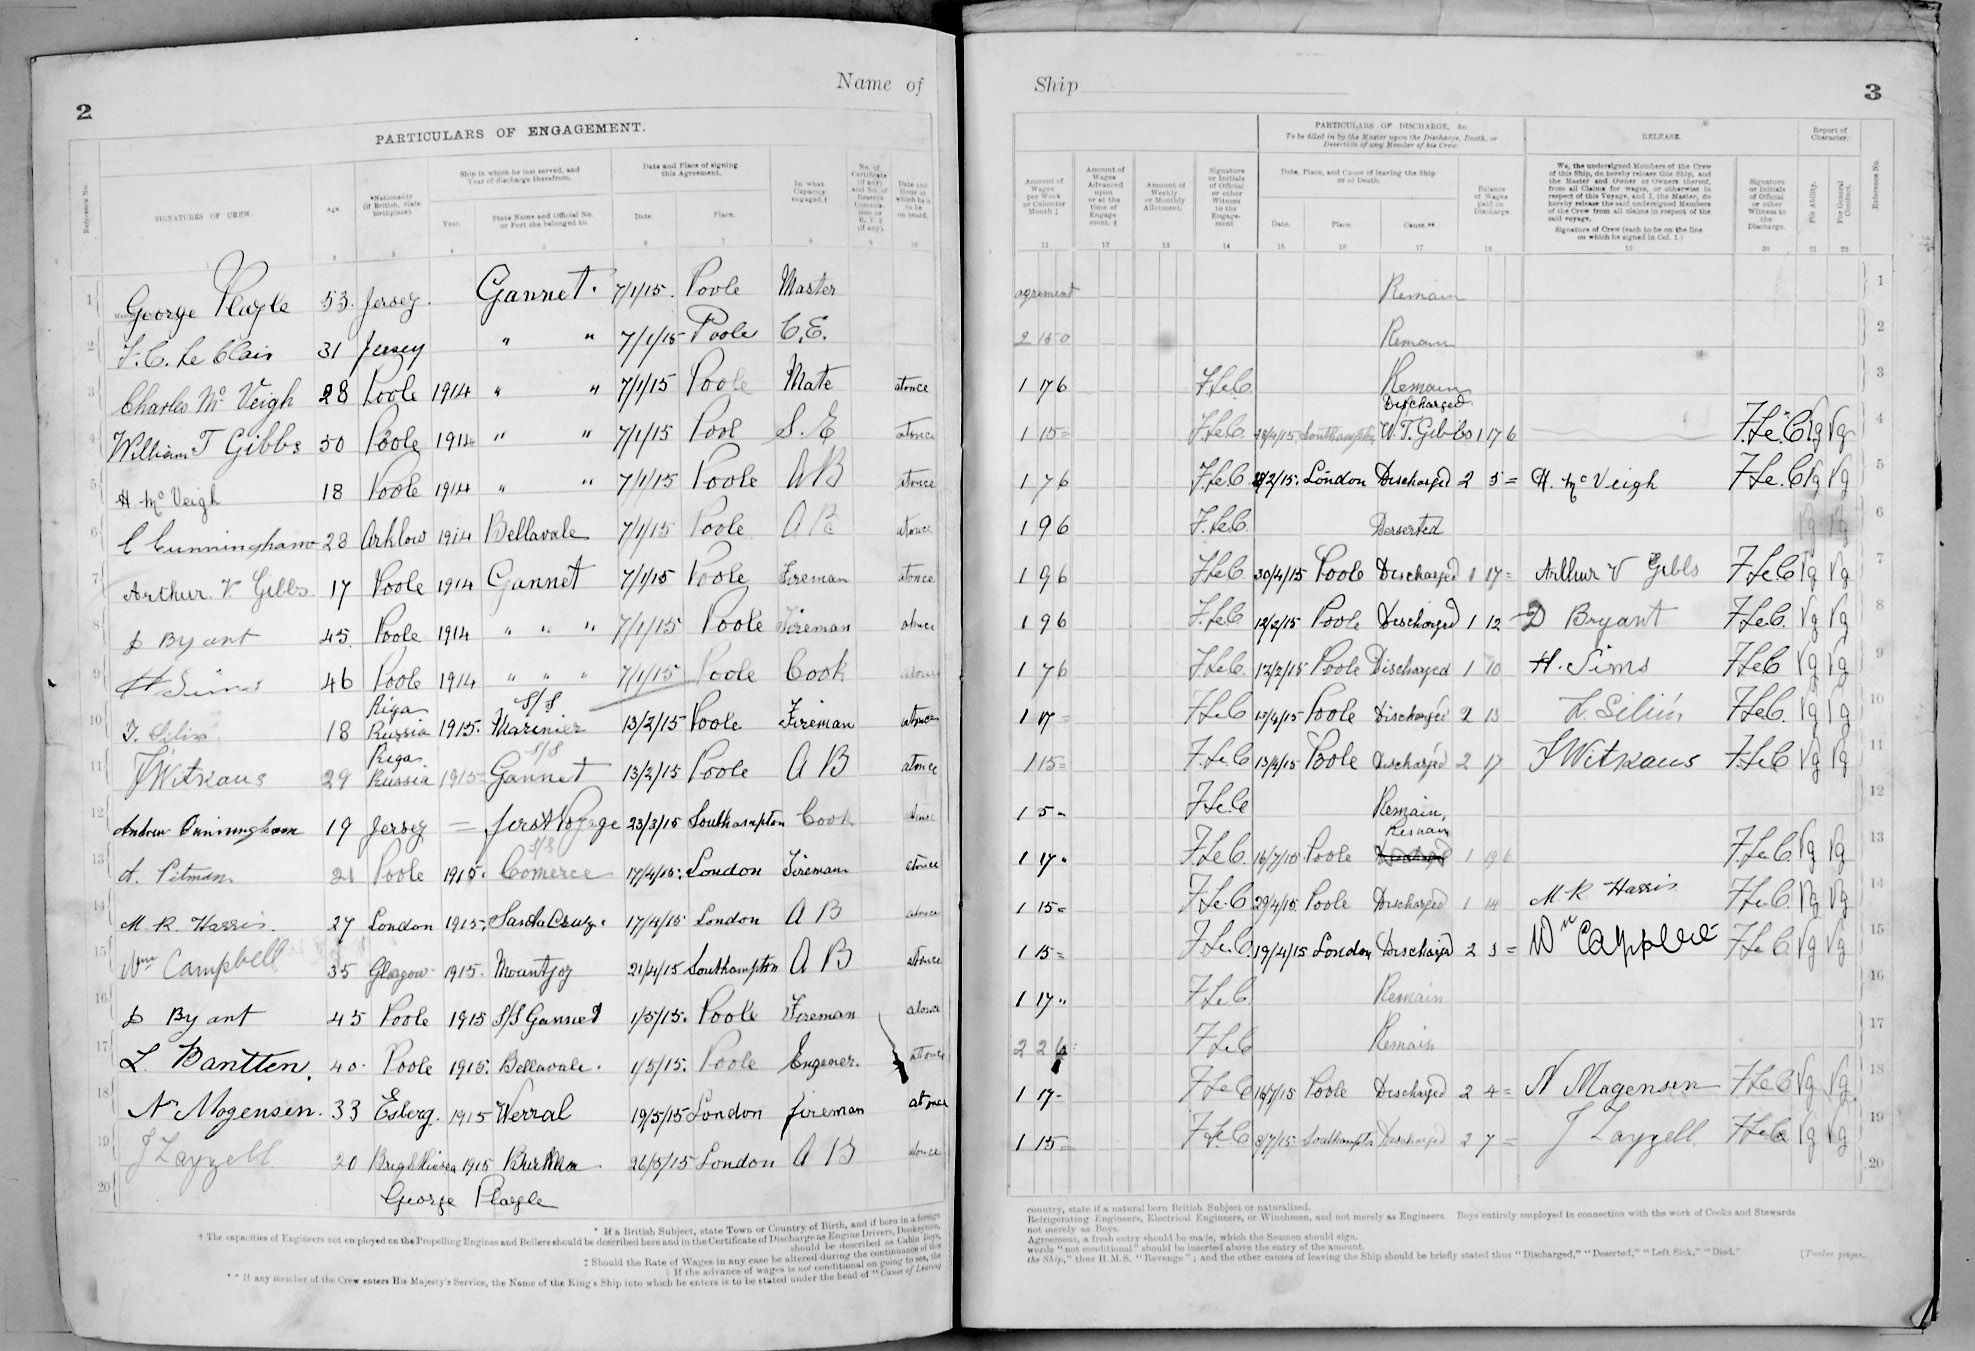 Name of
2
PARTICULARS OF ENGAGEMENT.
Reference No.
SIGNATURES OF CREW.
Age.
*Nationality (if British, state birthplace).
Ship in which he last served, and Year of discharge therefrom.
Year.
State Name and Official No. or Port she belonged to.
Date and Place of signing this Agreement.
Date.
Place.
In what Capacity engaged.†
No. of Certificate (if any)
Date and Hour at which he is to be on board.
1 2 3 4 5 6 7 8 9 10
1 George Playle 53. Jersey. Gannet. 7/1/15. Poole Master
2 F. C. Le Clair 31 Jersey " " 7/1/15 Poole C.E.
3 Charles Mc Veigh 28 Poole 1914 " " 7/1/15 Poole Mate atonce
4 William T Gibbs 50 Poole 1914 " " 7/1/15 Pool S.E atonce
5 H. Mc Veigh 18 Poole 1914 " " 7/1/15 Poole A B atonce
6 C Cunningham 28 Arklow 1914 Bellavale 7/1/15 Poole A B atonce
7 Arthur. V Gibbs 17 Poole 1914 Gannet 7/1/15 Poole Fireman atonce
8 D Byant 45 Poole 1914 " " " 7/1/15 Poole Fireman atonce
9 H Sims 46 Poole 1914 " " " 7/1/15 Poole Cook atonce
10 18 Riga Russia 1915. S/S Marinier 13/2/15 Poole Fireman atonce
11 Witkaus 29 Riga. Russia 1915 S/S Gannet 13/2/15 Poole A B atonce
12 Andrew Cunningham 19 Jersey = first Voyage 23/3/15 Southampton Cook atonce
13 A. Pitman 21 Poole 1915. S/S Comerce 17/4/15. London Fireman atonce
14 M. R. Harris. 27 London 1915. 17/4/15 London A B atonce
15 Wm Campbell 35 Glasgow 1915. Mountjoy 21/4/15 Southampton A B atonce
16 D Byant 45 Poole 1915 S/S Gannet 1/5/15. Poole Fireman atonce
17 L. Bantten. 40. Poole 1915. Bellavale. 1/5/15. Poole Engener. atonce
18 N. Mogensen. 33 Esberg. 1915 Werral 19/5/15 London fireman atonce
19 J Layzell 20 1915 26/5/15 London A B atonce
20 George Playle
* If a British Subject, state Town or Country of Birth, and if born in a foreign
† The capacities of Engineers not employed on the Propelling Engines and Boilers should be described here and in the Certificate of Discharge as Engine Drivers, Donkeymen,
should be described as Cabin Boys,
‡ Should the Rate of Wages in any case be altered during the continuance of the
If the advance of wages is not conditional on going to sea, the
** If any member of the Crew enters His Majesty's Service, the Name of the King's Ship into which he enters is to be stated under the head of "Cause of Leaving
Ship
3
PARTICULARS OF DISCHARGE, &c.
To be filled in by the Master upon the Discharge, Death, or Desertion of any Member of his Crew.
RELEASE.
Report of Character.
Amount of Wages per Week or Calendar Month ‡
Amount of Wages Advanced upon or at the time of Engagement. §
Amount of Weekly or Monthly Allotment.
Signature or Initials of Official or other Witness to the Engagement
Date, Place, and Cause of leaving the Ship or of Death.
Date.
Place.
Cause.**
Balance of Wages paid on Discharge.
We, the undersigned Members of the Crew of this Ship, do hereby release this Ship, and the Master and Owner or Owners thereof, from all Claims for wages, or otherwise in respect of this Voyage, and I, the Master, do hereby release the said undersigned Members of the Crew from all claims in respect of the said voyage.
Signature of Crew (each to be on the line on which he signed in Col. 1.)
Signature or Initials of Official or other Witness to the Discharge.
For Ability.
For General Conduct.
Reference No.
11 12 13 14 15 16 17 18 19 20 21 22
agrement Remain 1
Remain 2
1 17 6 F.LeC. Remain 3
1 15 = F.LeC. Southampton Discharged W.T. Gibbs 1 17 6 F.Le.C Vg Vg 4
1 7 6 F.LeC. London Discharged 2 5 = H. Mc Veigh F.Le.C Vg Vg 5
1 9 6 F.LeC. Derserted Vg Vg 6
1 9 6 F.LeC 30/4/15 Poole Discharged 1 17 = Arthur V Gibbs F.LeC Vg Vg 7
1 9 6 F.LeC 12/2/15 Poole Discharged 1 12 = D Bryant F.LeC. Vg Vg 8
1 7 6 F.LeC. 12/2/15 Poole Discharged 1 10 H. Sims F.LeC Vg Vg 9
1 17 = F.LeC 13/4/15 Poole Discharged 2 13 F.LeC. Vg Vg 10
1 15 = F.LeC 13/4/15 Poole Discharged 2 17 Witkaus F.LeC Vg Vg 11
1 5 - F.LeC Remain, 12
1 17 - F.LeC. 16/7/15 Poole Remain 1 9 6 F.LeC. Vg Vg 13
1 15 = F.LeC 29/4/15 Poole Discharged 1 14 M. R. Harris F.LeC. Vg Vg 14
1 15 = F.LeC. 19/4/15 London Discharged 2 3 = Wm Campbell F.LeC Vg Vg 15
1 17 " F.LeC. Remain 16
F.LeC Remain 17
1 17 - F.LeC 16/7/15 Poole Discharged 2 4 = N Mogensen F.LeC Vg Vg. 18
1 15 = F.LeC 8/7/15 Southampton Discharged 2 7 = J Layzell F.LeC Vg Vg 19
20
country, state if a natural born British Subject or naturalized.
Refrigerating Engineers, Electrical Engineers, or Winchmen, and not merely as Engineers. Boys entirely employed in connection with the work of Cooks and Stewards
not merely as Boys.
Agreement, a fresh entry should be made, which the Seamen should sign.
words "not conditional" should be inserted above the entry of the amount.
the Ship," thus H.M.S. "Revenge"; and the other causes of leaving the Ship should be briefly stated thus "Discharged," "Deserted," "Left Sick," "Died."
[Twelve pages.